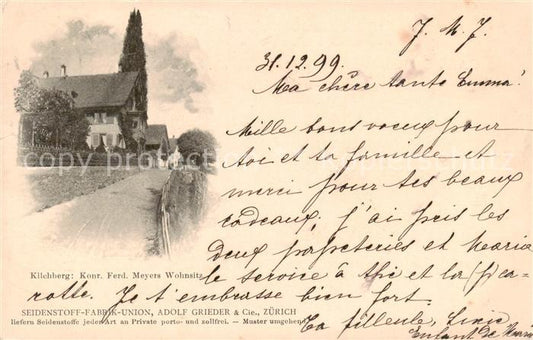 J. M. J.
31.12.99.
Ma chère tante Emma!
Mille bons voeux pour
toi et ta famille et
merci pour tes beaux
cadeaux; j'ai pris les
deux papeteries et Maria
Kilchberg: Konr. Ferd. Meyers Wohnsitz
le service à thé et la (p)ca-
rotte. Je t'embrasse bien fort
SEIDENSTOFF-FABRIK-UNION, ADOLF GRIEDER & Cie., ZÜRICH
liefern Seidenstoffe jeder Art an Private porto- und zollfrei. — Muster umgehend.
Ta filleule,
Enfant de Marie